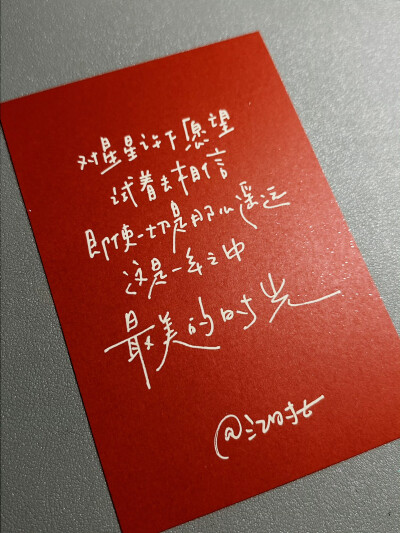 对星星许下愿望
试着去相信
即使一切是那么遥远
这是一年之中
最美的时光